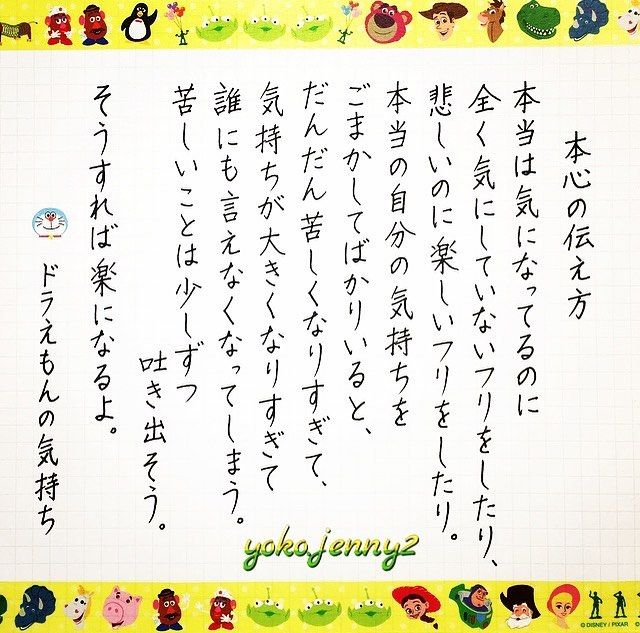 本心の伝え方
本当は気になってるのに
全く気にしていないフリをしたり、
悲しいのに楽しいフリをしたり。
本当の自分の気持ちを
ごまかしてばかりいると、
だんだん苦しくなりすぎて、
気持ちが大きくなりすぎて
誰にも言えなくなってしまう。
苦しいことは少しずつ
吐き出そう。
そうすれば楽になるよ。
ドラえもんの気持ち
yoko.jenny2
©DISNEY/PIXAR